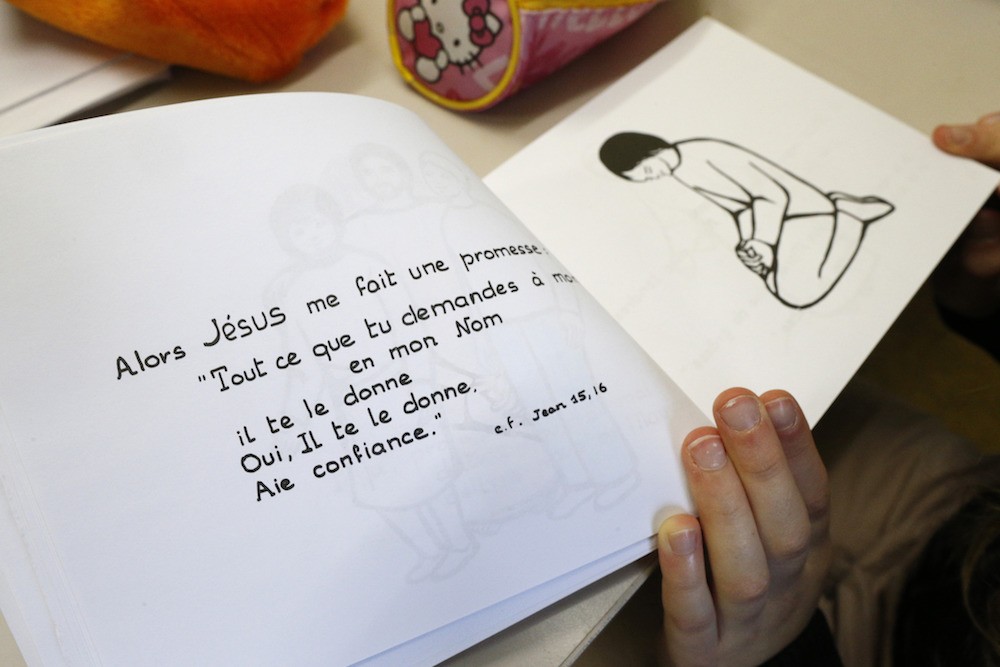 Alors Jésus me fait une promesse:
"Tout ce que tu demandes à
en mon Nom
il te le donne
Oui, Il te le donne.
Aie confiance."
c.f. Jean 15,16